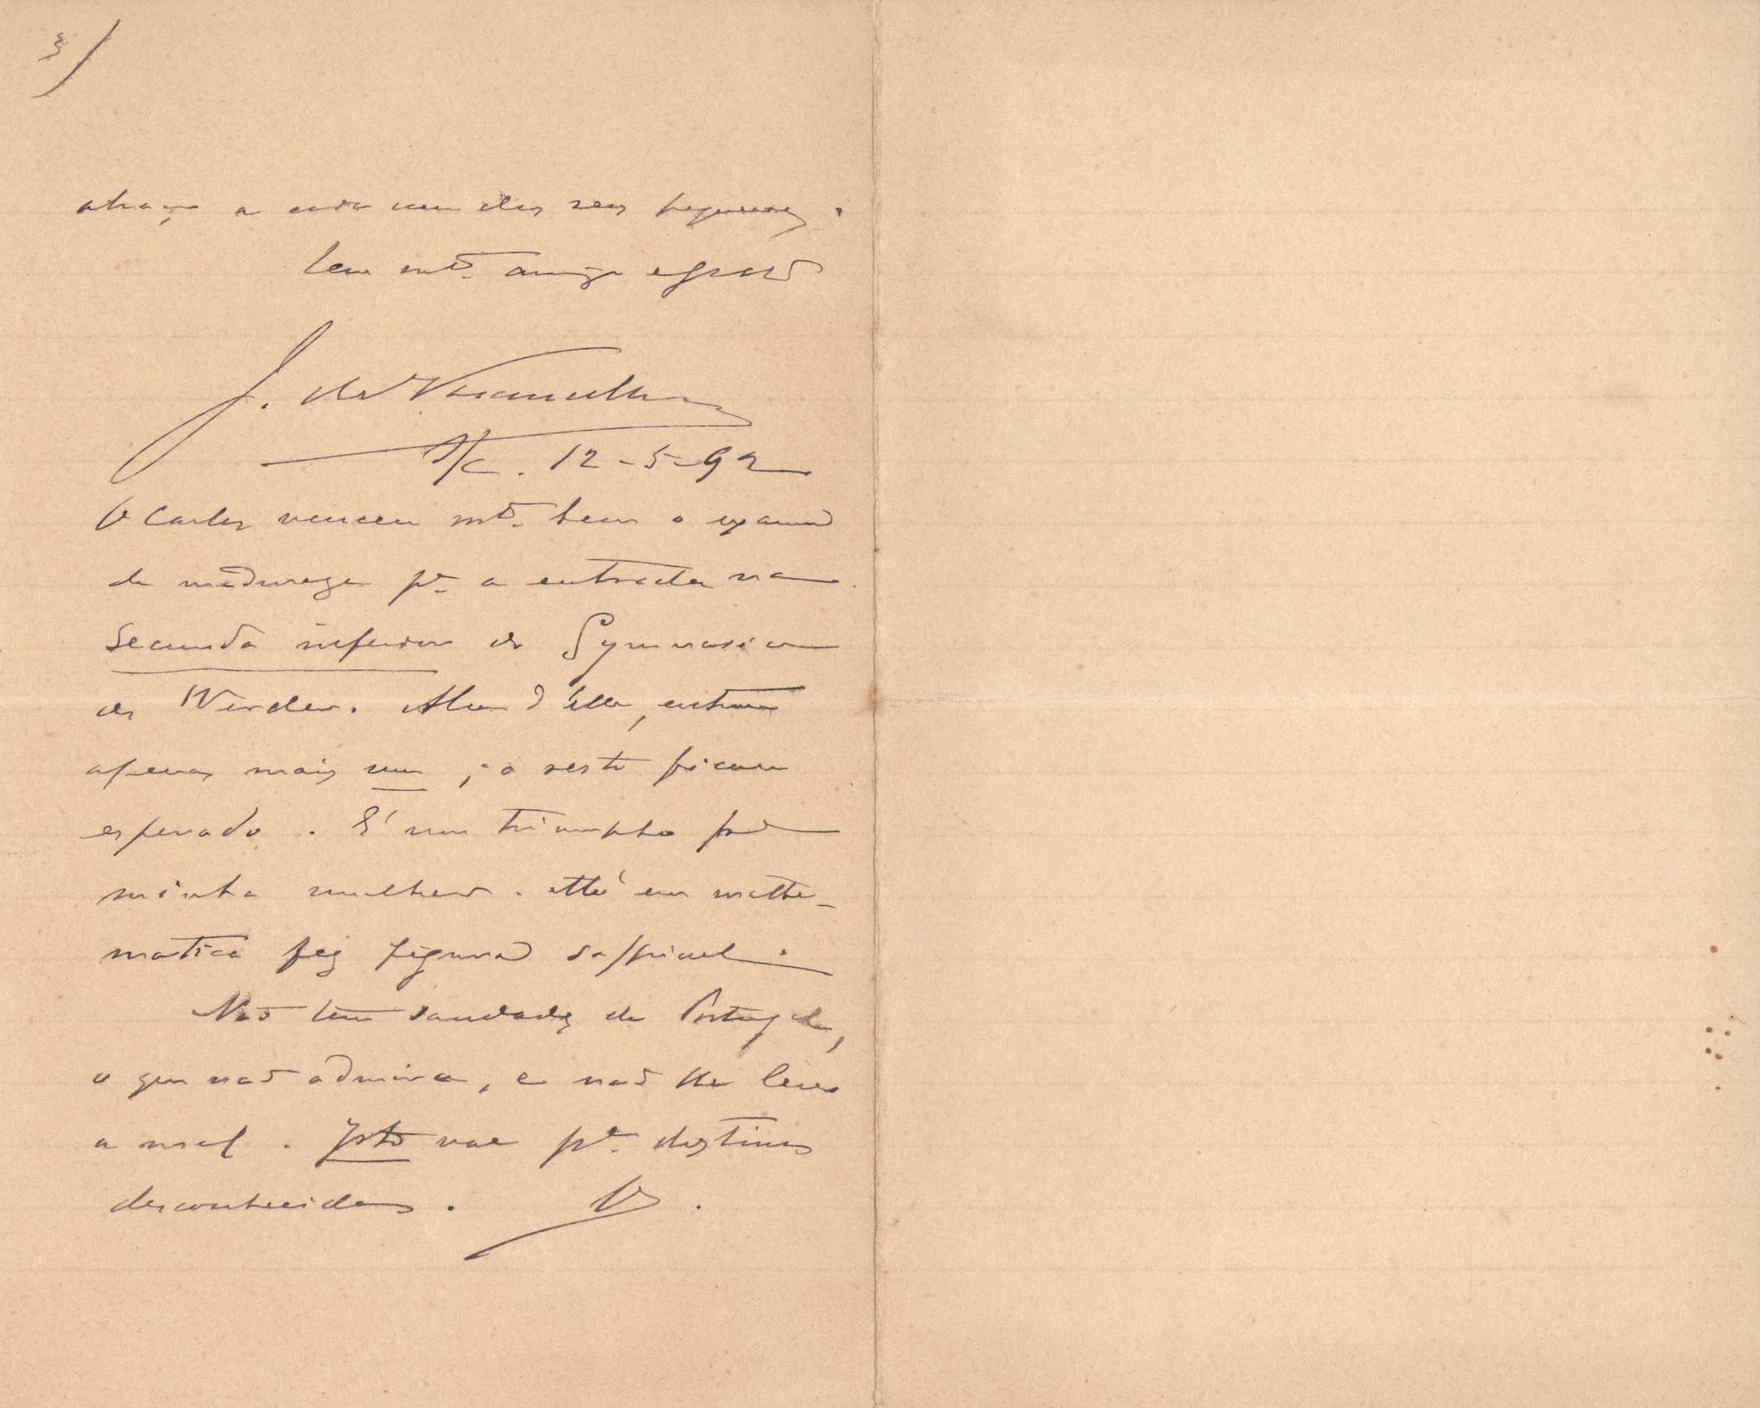 3)
abraço a cada um dos seus pequenos.
Seu mto. amigo e grato
J. de Vasconcellos
S/C. 12-5-92
O Carlos venceu mto. bem o exame
de madureza pa. a entrada na
Secunda inferior do Gymnasium
de Werder. Alem d'elle, entrou
apenas mais um; o resto ficou
esperado. É um triumpho pa
minha mulher. Até em mathe-
matica fez figura soffrivel.
Não tem saudades de Portugal,
o que não admira, e não lho levo
a mal. Isto vae pa. destinos
desconhecidos. V.